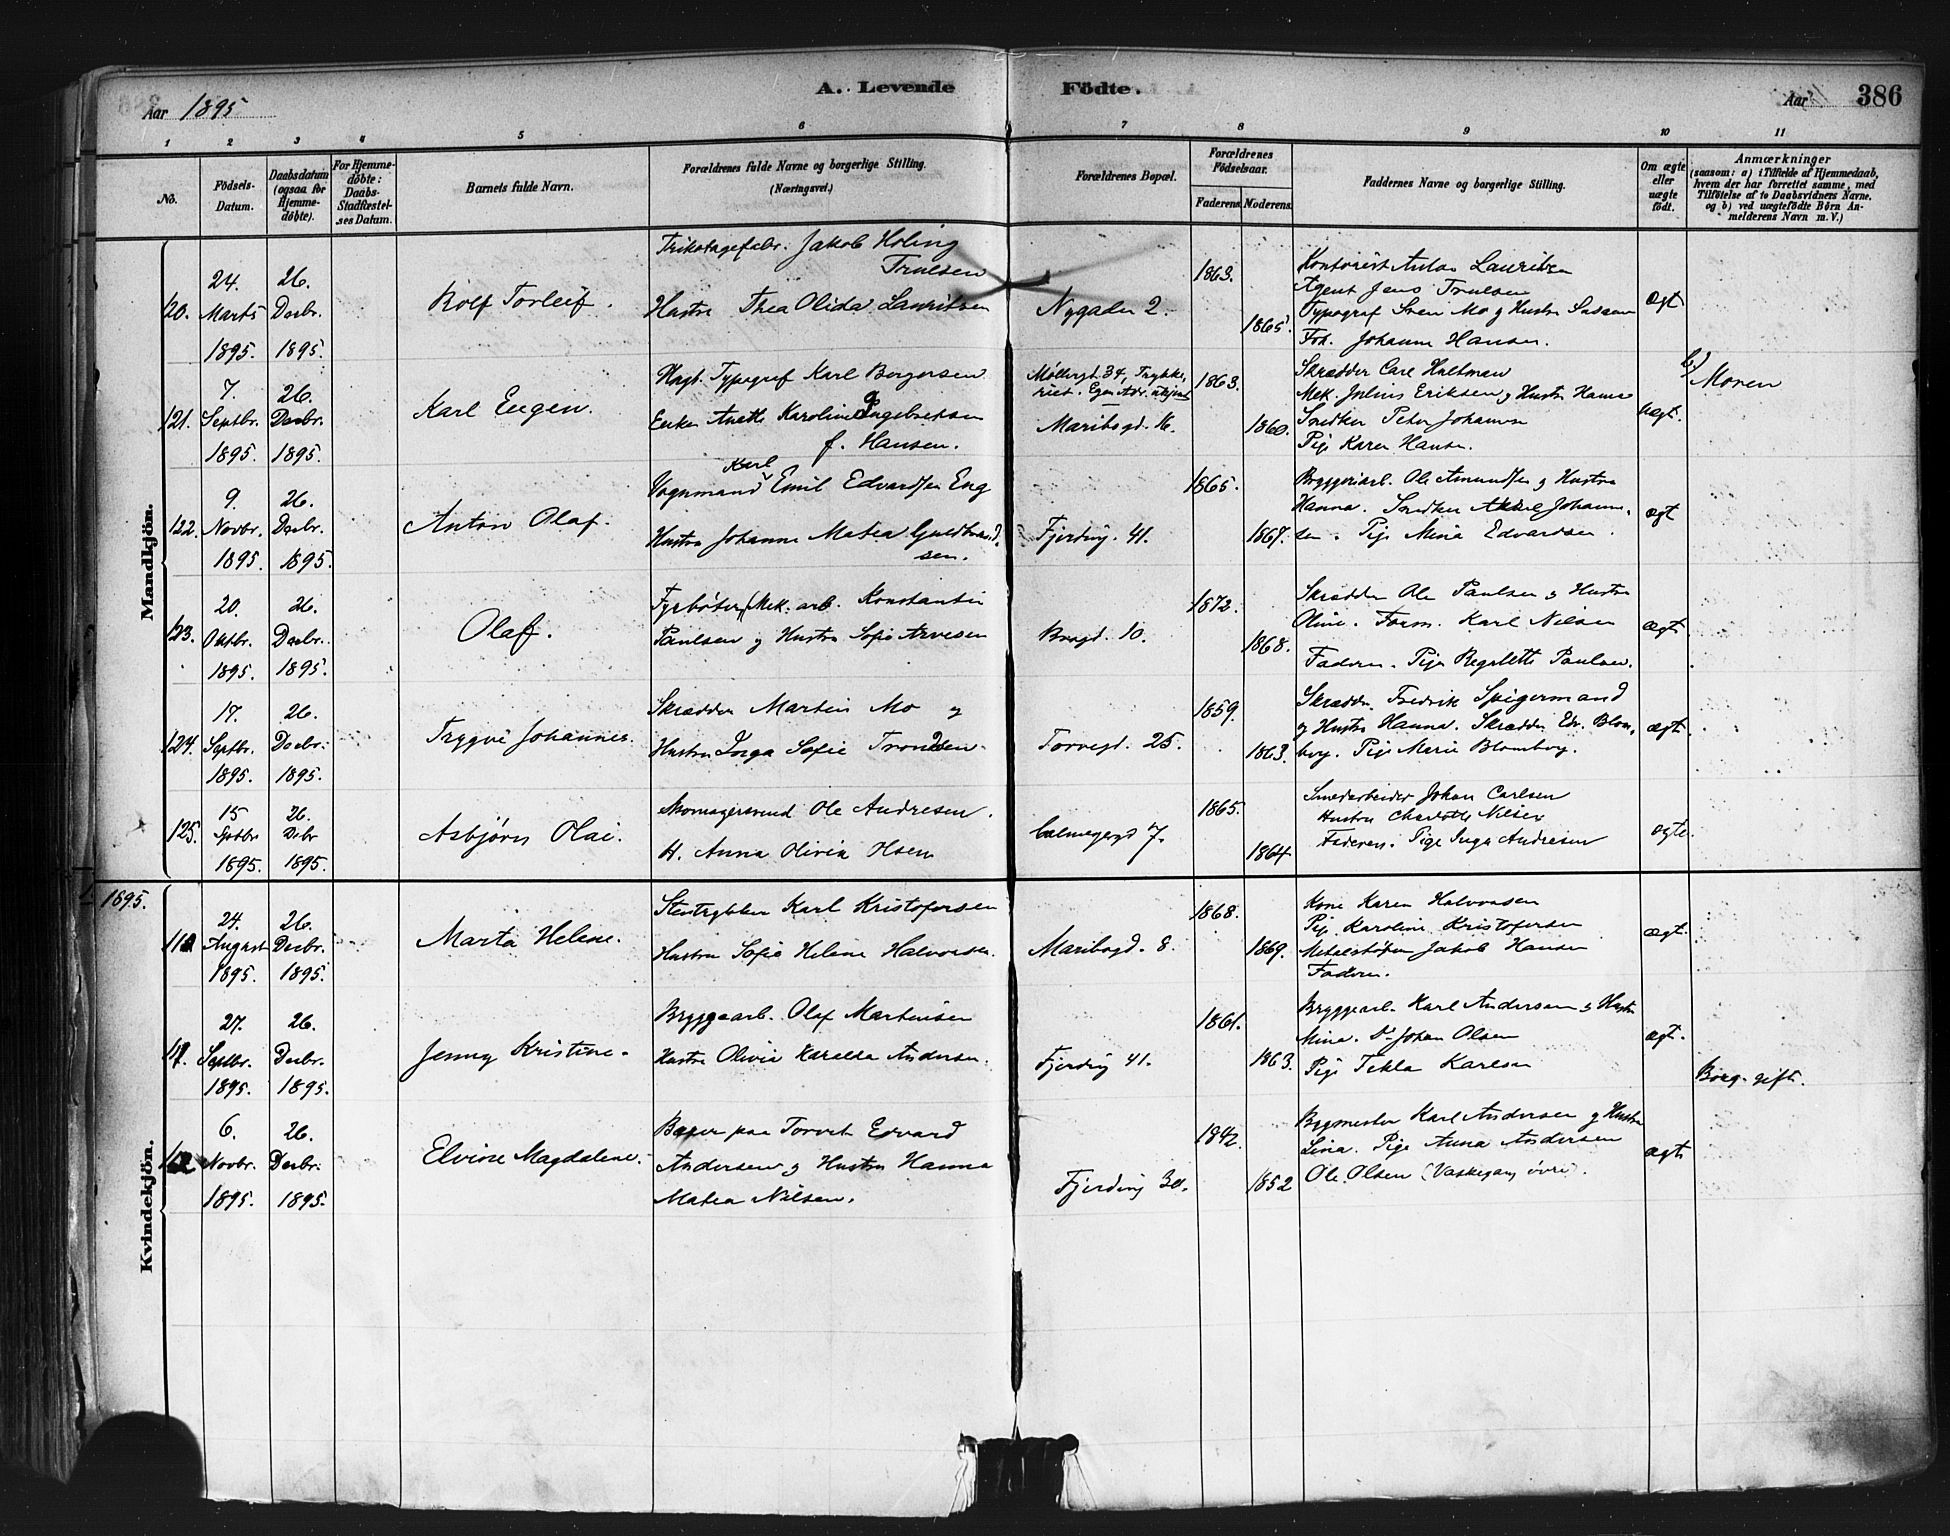 A. Levende Födte.
Aar 1895
Aar 386
1 2 3 4 5 6 7 8 9 10 11
No.
Födsels-Datum.
Daabsdatum (ogsaa for Hjemmedöbte).
For Hjemmedöbte: Daabs-Stadfæstelses Datum.
Barnets fulde Navn.
Forældrenes fulde Navne og borgerlige Stilling. (Næringsvei.)
Forældrenes Bopæl.
Forældrenes Födselsaar.
Faderens. Moderens.
Faddernes Navne og borgerlige Stilling.
Om ægte eller uægte födt.
Anmærkninger
(saasom: a) i Tilfælde af Hjemmedaab,
hvem der har forrettet samme, med
Tilföielse af to Daabsvidners Navne,
og b) ved uægtefödte Börn An-
melderens Navn m. V.)
Mandkjön.
120.
24. Marts 1895.
26. Decbr. 1895.
Rolf Torleif.
Trikotagefabr. Jakob Holing
Trulsen
Hustru Thea Olida Lauritsen
Nygaden 2.
1863.
1865.
Kontorist Anton Lauritzen
Agent Jens Trulsen
Typograf Svein Mo og Hustru
Frk. Johanne Hansen.
ægt
121.
7. Septbr. 1895.
26. Decbr. 1895.
Karl Eugen.
Ungk. Typograf Karl Borgersen
Enke Anette Karoline Ingebretsen
f. Hansen.
Møllergd. 34, Trykke-
riet. Egen Adr. ukjent
Maribogd. 16.
1863.
1860.
Skrædder Carl Hultman
Mek. Julius Eriksen og Hustru Hanna
Snedker Peter Johansen
Pige Karen Hansen.
uægt.
b) Moren
122.
9. Novbr. 1895.
26. Decbr. 1895.
Anton Olaf.
Karl
Vognmand Emil Edvardsen Eng
Hustru Johanne Matea Guldbrand-
sen.
Fjerding. 41.
1865.
1867.
Bryggeriarb. Ole Amundsen og Hustru
Hanna. Snedker Johann-
sen. Pige Mina Edvardsen.
ægt
123.
20. Oktbr. 1895.
26. Decbr. 1895.
Olaf.
Fyrbøter (Mek. arb. Konstantin
Paulsen og Hustru Sofie Arvesen
Brugd. 10.
1872.
1868.
Skrædder Ole Paulsen og Hustru
Oline. Form. Karl Nilsen
Faderen. Pige Regelette Paulsen.
ægt
124.
17. Septbr. 1895.
26. Decbr. 1895.
Trygve Johannes.
Skrædder Martin Mo og
Hustru Inga Sofie Trondsen.
Torvegd. 25.
1859.
1863.
Skrædder Fredrik Spigermand
og Hustru Hanna. Skrædder Edv. Blom-
berg. Pige Marie Blomberg.
ægt.
125.
15 Septbr 1895.
26. Decbr 1895.
Asbjørn Olai.
Skomagersvend Ole Andresen.
H. Anna Olivia Olsen
Calmeyergd 7.
1865.
1864
Smedarbeider Johan Carlsen
Hustru Charlotte Nilsen
Faderen. Pige Inga Andresen
ægte.
1895.
Kvindekjön.
110
24. August 1895.
26. Decbr. 1895.
Marta Helene.
Stentrykker Karl Kristofersen
Hustru Sofie Helene Halvorsen.
Maribogd. 8.
1868.
1869.
Kone Karen Halvorsen
Pige Karoline Kristofersen
Metalstøber Jakob Hansen
Faderen.
ægt.
111.
27. Septbr. 1895.
26. Decbr. 1895.
Jenny Kristine.
Bryggearb. Olaf Martinsen
Hustru Olivia Karelsa Andersen.
Fjerding 41.
1861.
1863.
Bryggearb. Karl Andersen og Hustru
Mina. Do Johan Olsen
Pige Tekla Karlsen
ægt.
Borg. gift.
112
6. Novbr. 1895.
26. Decbr. 1895.
Elvine Magdalene.
Bærer paa Torvet Edvard
Andersen og Hustru Hanna
Matea Nilsen.
Fjerding 30.
1842.
1852
Bygmester Karl Andersen og Hustru
Lina. Pige Anna Andersen
Ole Olsen (Vaskegang øvre).
ægt